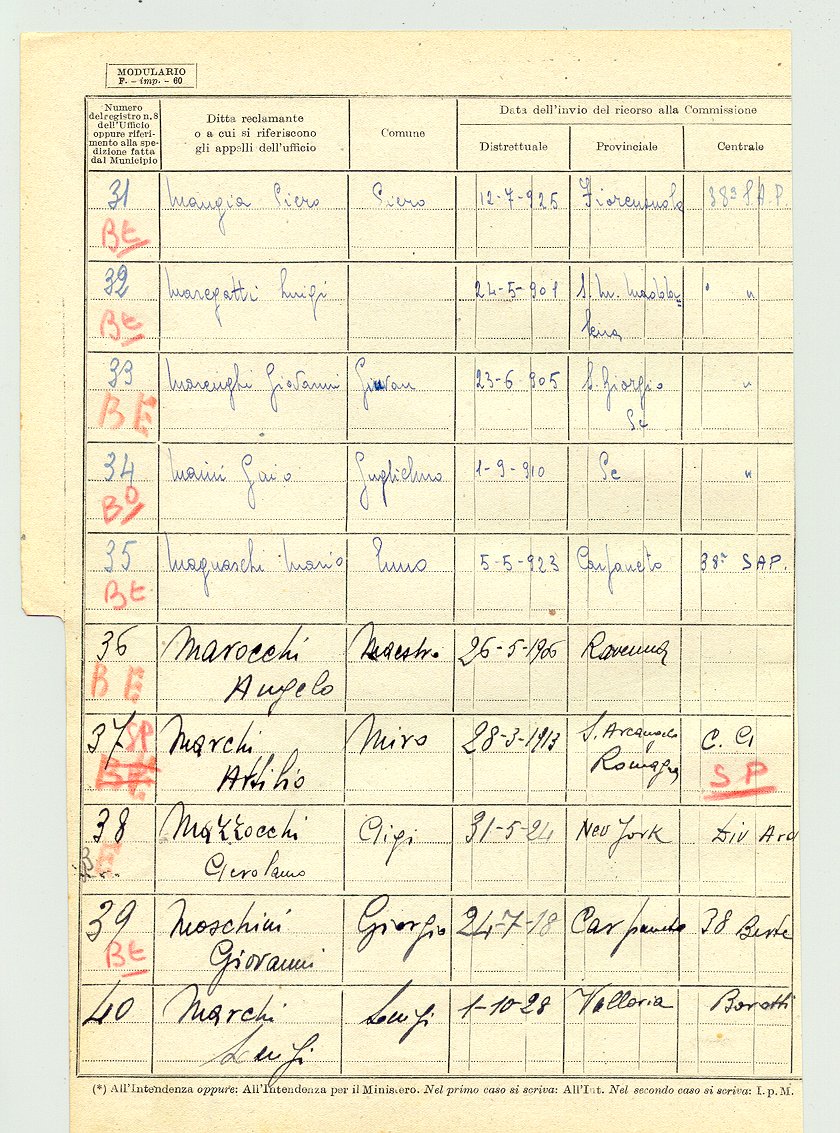 MODULARIO
F. - imp. - 60
Numero
del registro n. 8
dell'Ufficio
oppure riferi-
mento alla spe-
dizione fatta
dal Municipio
Ditta reclamante
o a cui si riferiscono
gli appelli dell'ufficio
Comune
Data dell'invio del ricorso alla Commissione
Distrettuale Provinciale Centrale
31 Mangia Piero Piero 12-7-925 38ª S.A.P.
BE
32 Maregatti Luigi 24-5-901 S. M. Madda=
lena "
BE
33 Marenghi Giovanni 23-6-905 S. Giorgio
Pc "
BE
34 Gaio Guglielmo 1-9-910 Pc "
BO
35 Magnaschi Mario Enno 5-5-923 Carpaneto 38ª SAP.
BE
36 Marocchi Maestro 26-5-1906 Ravenna
Angelo
BE
37 SP Marchi Miro 28-3-1913 S. Arcangelo
Attilio Romagna
SP
BE
38 Mazzocchi Gigi 31-5-24 New York Div
Gerolamo
BE
39 Moschini Giorgio 24-7-18 Carpaneto 38
Giovanni
BE
40 Marchi Luigi 1-10-28 Valloria Barotti
Luigi
(*) All'Intendenza oppure: All'Intendenza per il Ministero. Nel primo caso si scriva: All'Int. Nel secondo caso si scriva: I. p. M.